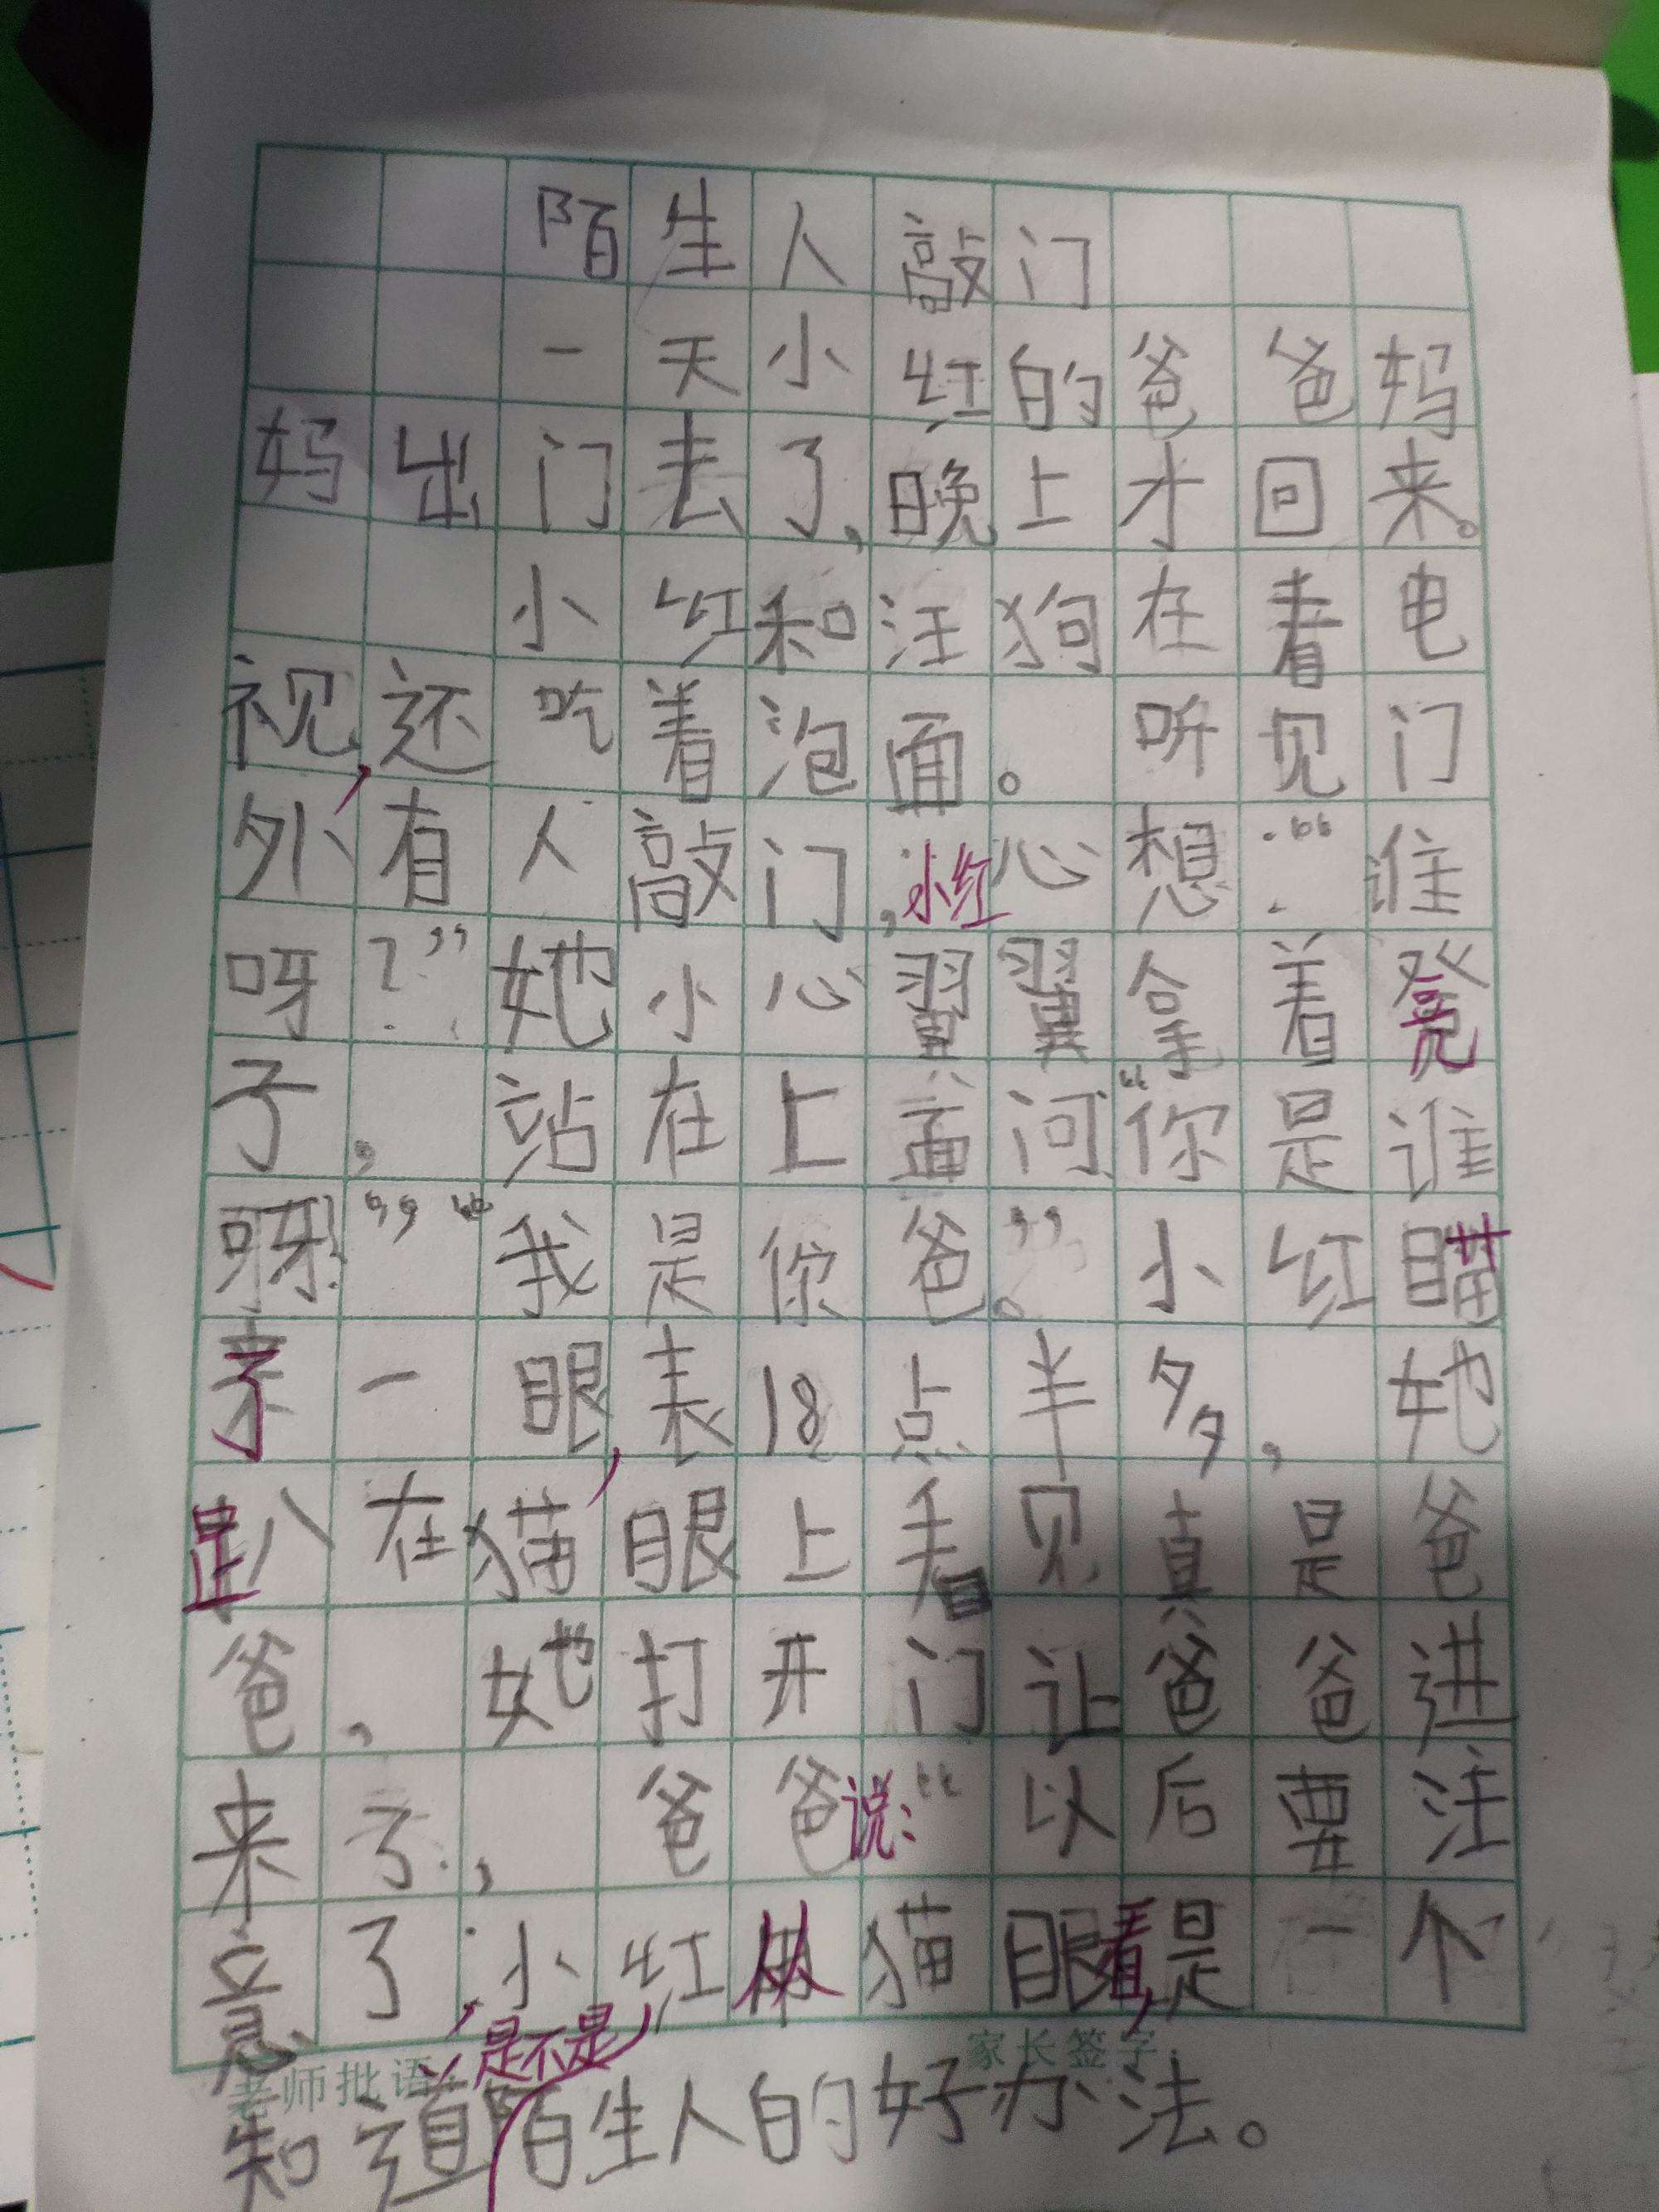 陌生人敲门
一天小红的爸爸妈
妈出门去了,晚上才回来。
小红和汪狗在看电
视,还吃着泡面。听见门
外有人敲门,小红心想:“谁
呀?”她小心翼翼拿着凳
子,站在上面问“你是谁
呀”“我是你爸。”小红瞄
了一眼,表18点半多,她
趴在猫眼上看见真是爸
爸,她打开门让爸爸进
来了,爸爸说:“以后要注
意了,小红从猫眼看,是一个
老师批语: 家长签字:
知道是不是陌生人的好办法。